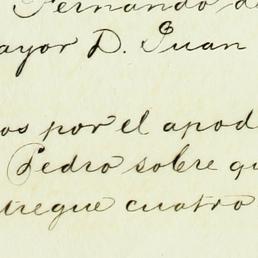 Fernando de
ayor D. Juan
os por el apod
Pedro sobre qu
tregue cuatro